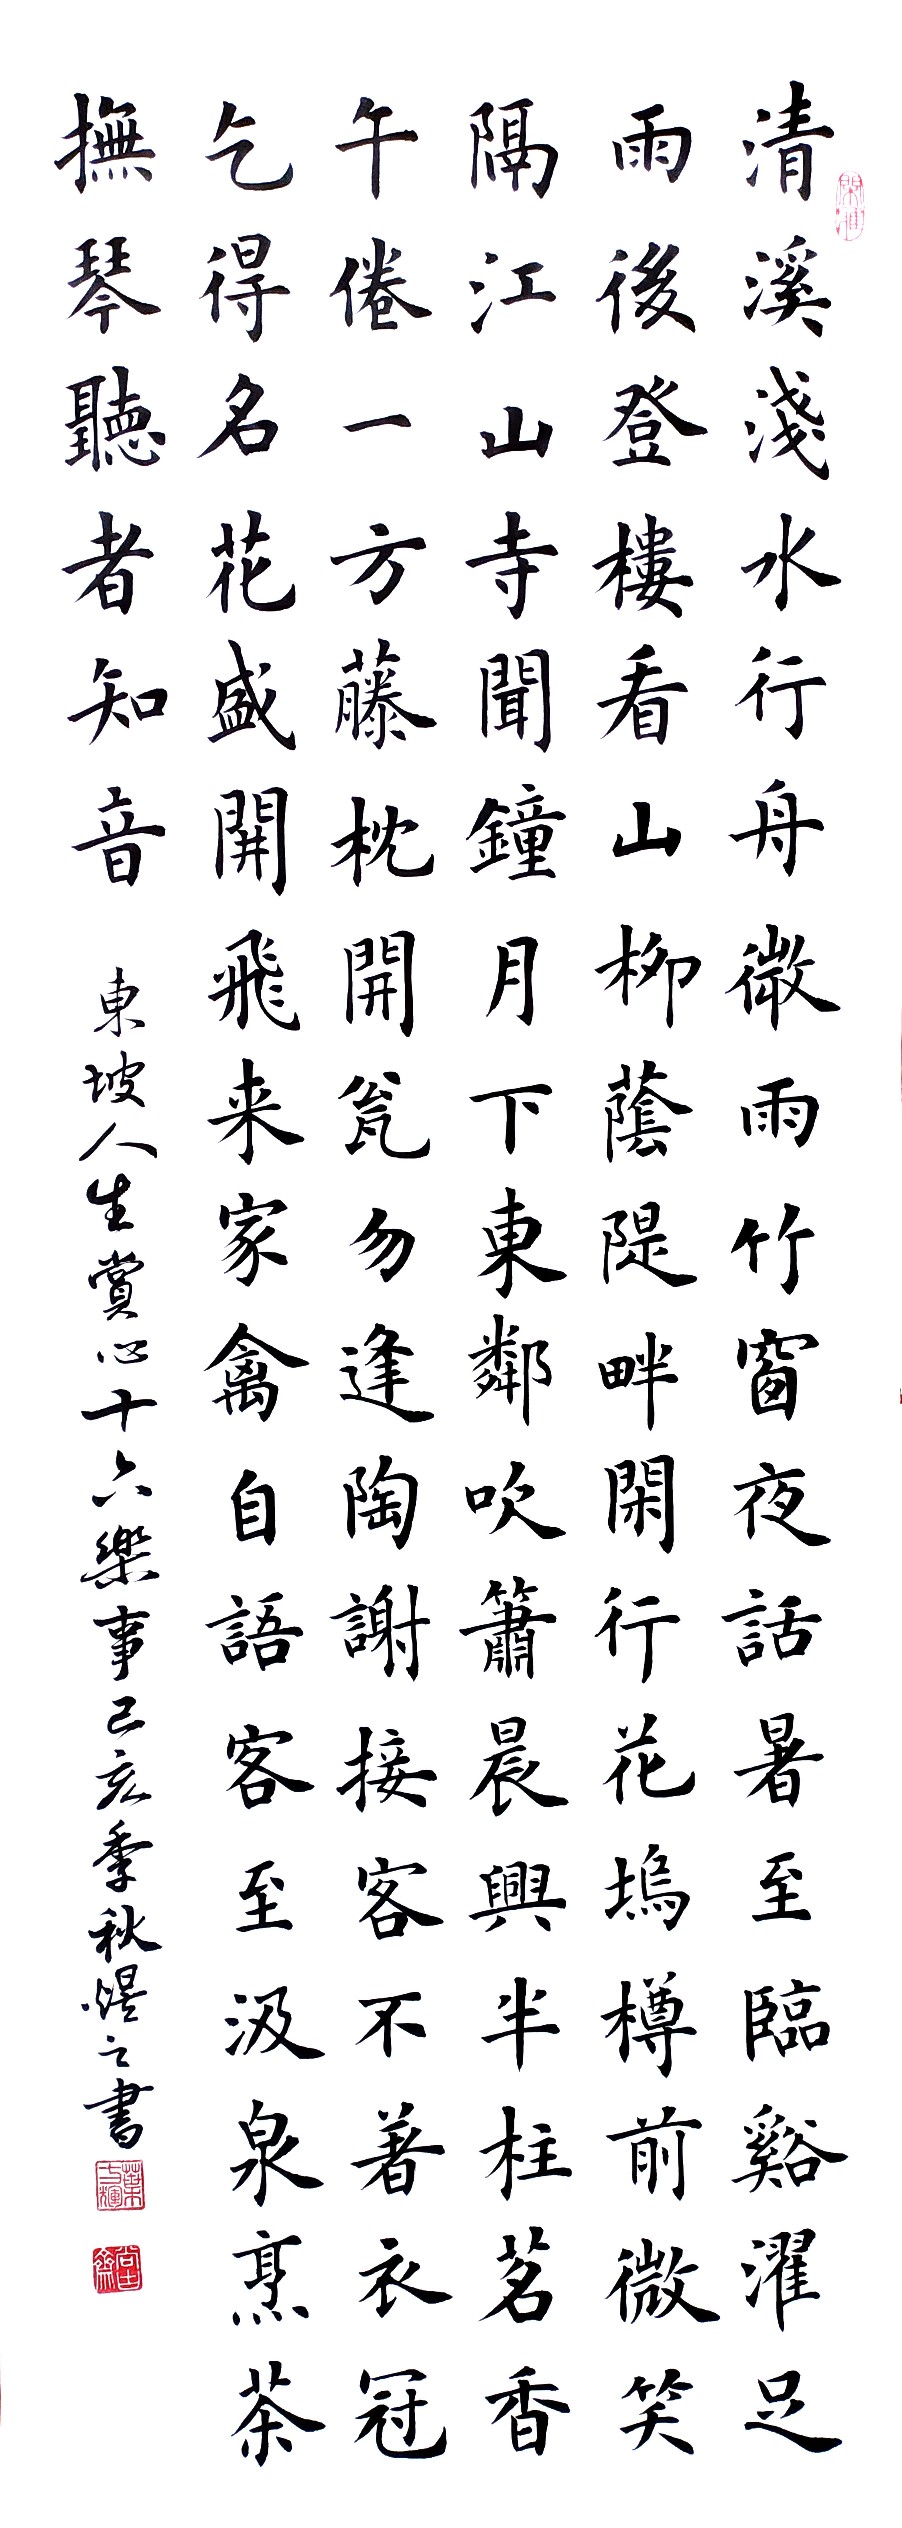 清溪淺水行舟微雨竹窗夜話暑至臨谿濯足
雨後登樓看山柳蔭隄畔閑行花塢樽前微笑
隔江山寺聞鐘月下東鄰吹簫晨興半柱茗香
午倦一方藤枕開瓮勿逢陶謝接客不著衣冠
乞得名花盛開飛来家禽自語客至汲泉烹茶
撫琴聽者知音
東坡人生賞心十六樂事己亥季秋之書